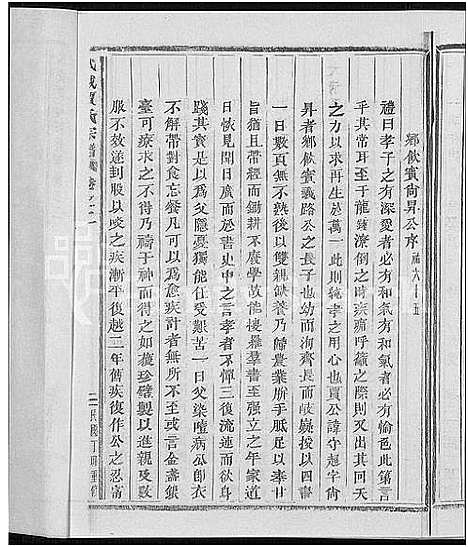 鄉飲賓尚昇公序 福六十五
禮曰孝子之有深愛者必有和氣有和氣者必有愉色此第言
乎其常耳至于龍鍾潦倒之時疾痛呼籲之際則又出其回天
之力以求再生於萬一此則純孝之用心也夏公諱守超字尚
昇者鄉飲賓義路公之長子也幼而洵齊長而岐嶷授以四書
一日數頁無不熟後以雙親缺養乃歸農業胼手胝足以奉甘
旨猶且帶經而鋤耕不廢學故能接羅至强立之年家道
日恢見聞日廣而於書史中之言孝者不憚三復流連而欲身
踐其實是以為父隱憂獨能任受艱苦一日父染噎病公卽衣
不解帶對食忘餐凡可以為愈疾計者無所不至或言金盞鎖
臺可療求之不得乃禱于神而得之如獲珍璧製以進親及數
服不效遂刲股以啖之疾漸平復越二年舊疾復作公之忍
氏宗譜 卷之二
二 民國丁 重修